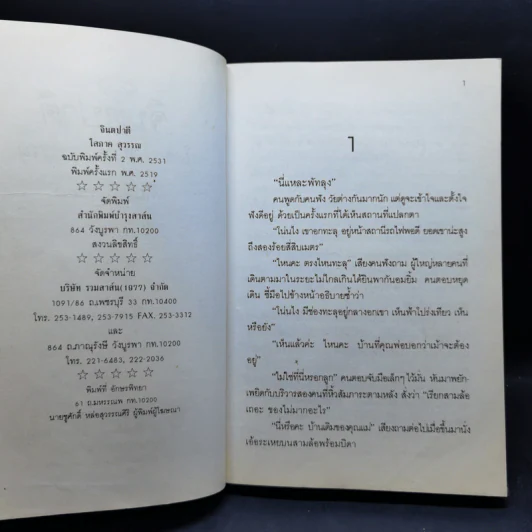 จินตปาตี
โสภาค สุวรรณ
ฉบับพิมพ์ครั้งที่ 2 พ.ศ. 2531
พิมพ์ครั้งแรก พ.ศ. 2519
☆ ☆ ☆ ☆ ☆
จัดพิมพ์
สำนักพิมพ์บำรุงสาส์น
864 วังบูรพา กท.10200
สงวนลิขสิทธิ์
☆ ☆ ☆ ☆ ☆
จัดจำหน่าย
บริษัท รวมสาส์น(1977) จำกัด
1091/86 ถ.เพชรบุรี 33 กท.10400
โทร. 253-1489, 253-7915 FAX. 253-3312
และ
864 ถ.ภาณุรังษี วังบูรพา กท.10200
โทร. 221-6483, 222-2036
☆ ☆ ☆ ☆ ☆
พิมพ์ที่ อักษรพิทยา
61 ถ.มหรรณพ กท.10200
นายชูศักดิ์ หล่อสุวรรณศิริ ผู้พิมพ์ผู้โฆษณา
1
1
"นี่แหละพัทลุง"
คนพูดกับคนฟัง วัยต่างกันมากนัก แต่ดูจะเข้าใจและตั้งใจ
ฟังดีอยู่ ด้วยเป็นครั้งแรกที่ได้เห็นสถานที่แปลกตา
"โน่นไง เขาอกทะลุ อยู่หน้าสถานีรถไฟพอดี ยอดเขาน่ะสูง
ถึงสองร้อยสี่สิบเมตร"
"ไหนคะ ตรงไหนทะลุ" เสียงคนฟังถาม ผู้ใหญ่หลายคนที่
เดินตามมาในระยะไม่ไกลเกินได้ยินพากันอมยิ้ม คนตอบหยุด
เดิน ชี้มือไปข้างหน้าอธิบายซ้ำว่า
"โน่นไง มีช่องทะลุอยู่กลางอกเขา เห็นฟ้าโปร่งเทียว เห็น
หรือยัง"
"เห็นแล้วค่ะ ไหนคะ บ้านที่คุณพ่อบอกว่าเม้าจะต้อง
อยู่"
"ไม่ใช่ที่นี่หรอกลูก" คนตอบจับมือเล็กๆ ไว้มั่น หันมาพยัก-
เพยิดกับบริวารสองคนที่หิ้วสัมภาระตามหลัง สั่งว่า "เรียกสามล้อ
เถอะ ของไม่มากอะไร"
"นี่หรือคะ บ้านเดิมของคุณแม่" เสียงถามต่อไปเมื่อขึ้นมานั่ง
เอ้อระเหยบนสามล้อพร้อมบิดา